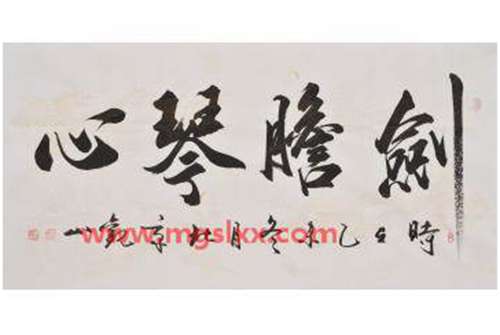 劍膽琴心
時在乙未冬月於京
www.mgslxx.com